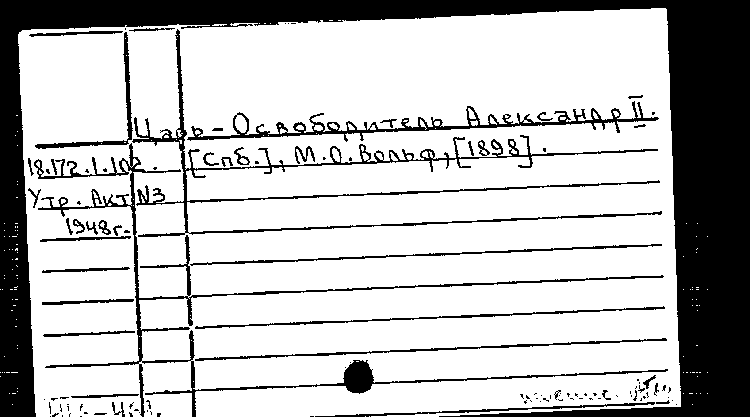 Царь-Освободитель Александр II.
18.172.1.102. [Спб.], М.О.Вольф, [1898].
Утр. Акт N3
1948г.